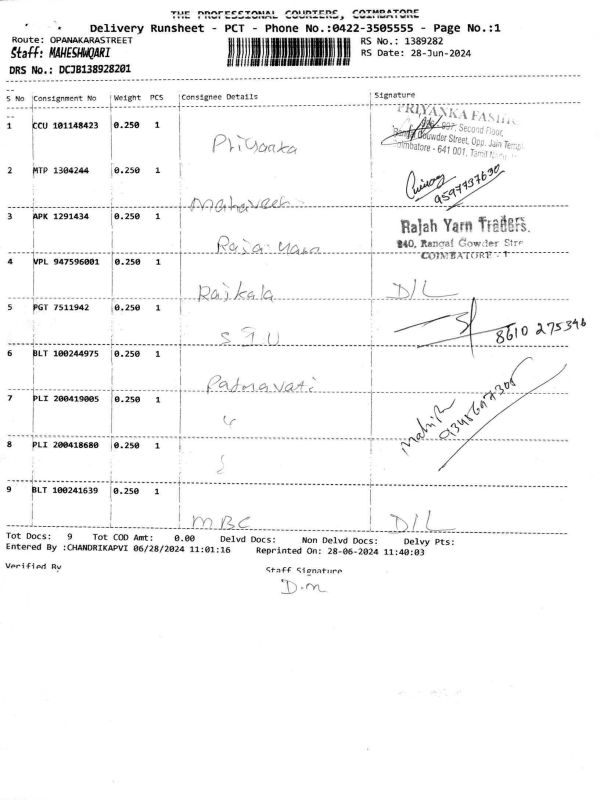 THE PROFESSIONAL COURIERS, COIMBATORE
Delivery Runsheet - PCT - Phone No.:0422-3505555 - Page No.:1
Route: OPANAKARASTREET
RS No.: 1389282
Staff: MAHESHWQARI
RS Date: 28-Jun-2024
DRS No.: DCJB138928201
S No Consignment No Weight PCS Consignee Details Signature
1 CCU 101148423 0.250 1 Priyanka
PRIYANKA FASHI
997, Second Floor,
Gowder Street, Opp. Jain Templ
Coimbatore - 641 001, Tamil
2 MTP 1304244 0.250 1 Mahaveer
9597737630
3 APK 1291434 0.250 1 Raja Yarn
Rajah Yarn Traders.
840, Rangai Gowder Stre
COIMBATORE - 1
4 VPL 947596001 0.250 1 Rajkala D/L
5 PGT 7511942 0.250 1 S T U
8610 275346
6 BLT 100244975 0.250 1 Padmavati
7 PLI 200419005 0.250 1 "
8 PLI 200418680 0.250 1
9 BLT 100241639 0.250 1 MBC D/L
Tot Docs: 9 Tot COD Amt: 0.00 Delvd Docs: Non Delvd Docs: Delvy Pts:
Entered By :CHANDRIKAPVI 06/28/2024 11:01:16 Reprinted On: 28-06-2024 11:40:03
Verified By Staff Signature
D.m